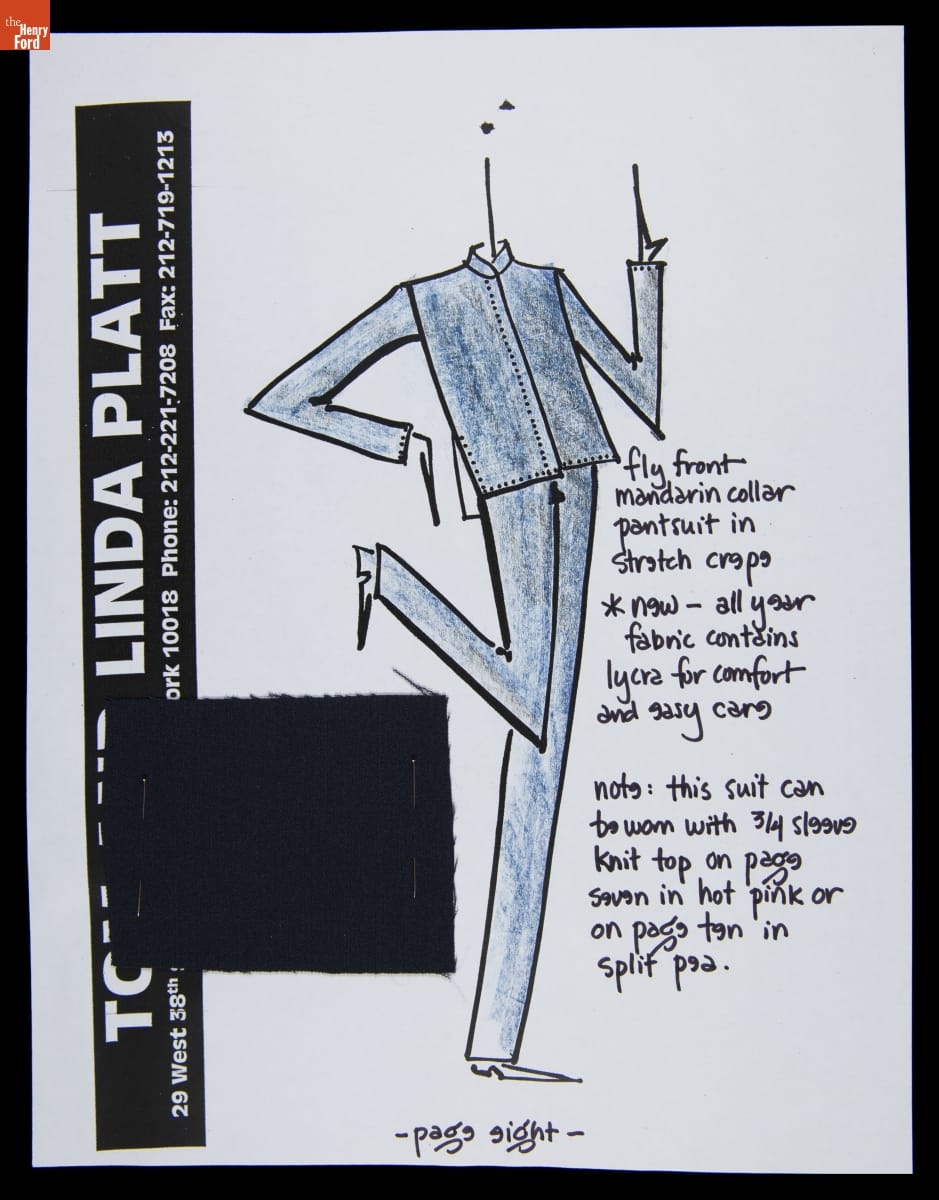 the
Henry
Ford
LINDA PLATT
29 West 38th
ork 10018 Phone: 212-221-7208 Fax: 212-719-1213
fly front
mandarin collar
pantsuit in
stretch crepe
* new - all year
fabric contains
lycra for comfort
and easy care
note: this suit can
be worn with 3/4 sleeve
knit top on page
seven in hot pink or
on page ten in
split pea.
- page eight -